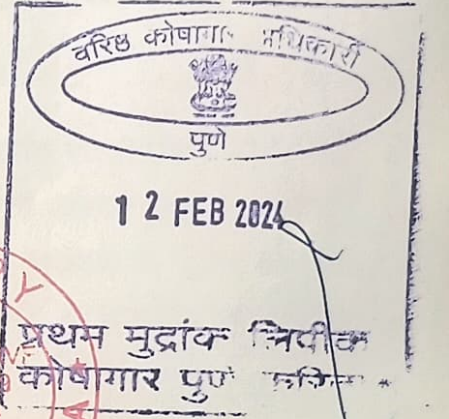 वरिष्ठ कोषागार अधिकारी
पुणे
12 FEB 2024
प्रथम मुद्रांक
कोषागार पुणे